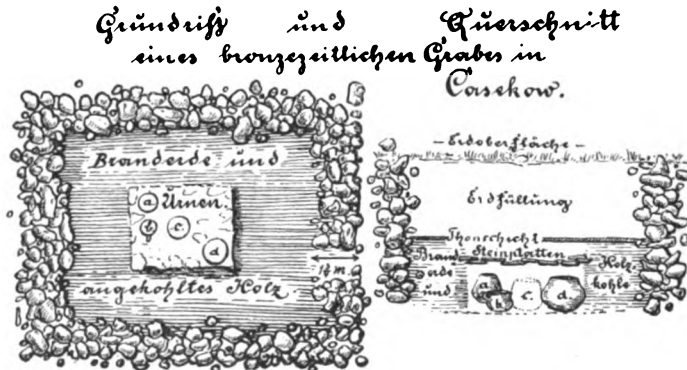 Grundriß und Querschnitt
eines bronzezeitlichen Grabes in
Casekow.
Branderde und
a Urnen
b c.
d
angekohltes Holz.
1½ m.
- Erdoberfläche -
Erdfüllung
Thonschicht
Steinplatten
Brand
erde
und
Holz-
kohle
a.
b.
c.
d.